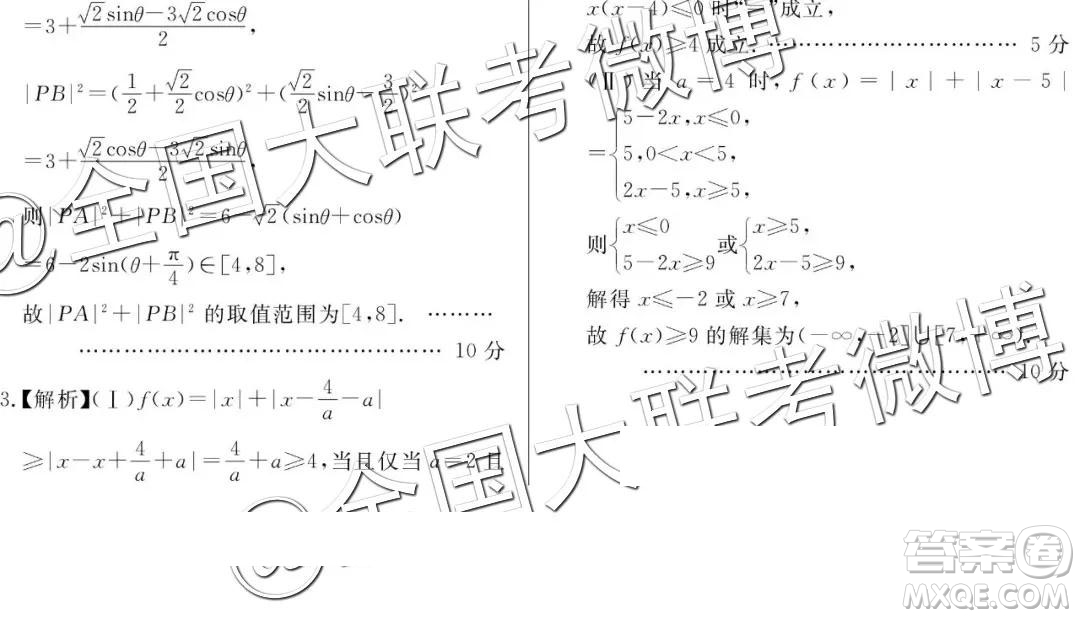 =3+(√2sinθ-3√2cosθ)/2,
|PB|²=(1/2+√2/2cosθ)²+(√2/2sinθ-3/2)²
=3+(√2cosθ-3√2sinθ)/2,
则|PA|²+|PB|²=6-√2(sinθ+cosθ)
=6-2sin(θ+π/4)∈[4,8],
故|PA|²+|PB|² 的取值范围为[4,8]. ………
………………………………………… 10 分
3.【解析】(Ⅰ)f(x)=|x|+|x-4/a-a|
≥|x-x+4/a+a|=4/a+a≥4,当且仅当 a=2 且
x(x-4)≤0 时“=”成立,
故 f(x)≥4 成立. …………………………… 5 分
(Ⅱ)当 a=4 时, f(x)=|x|+|x-5|
={5-2x,x≤0,
5,0<x<5,
2x-5,x≥5,
则{x≤0 或{x≥5,
5-2x≥9 2x-5≥9,
解得 x≤-2 或 x≥7,
故 f(x)≥9 的解集为(-∞,-2]∪[7,+∞).
………………………………………… 10 分
@全国大联考微博
@全国大联考微博
答案圈
MXQE.COM